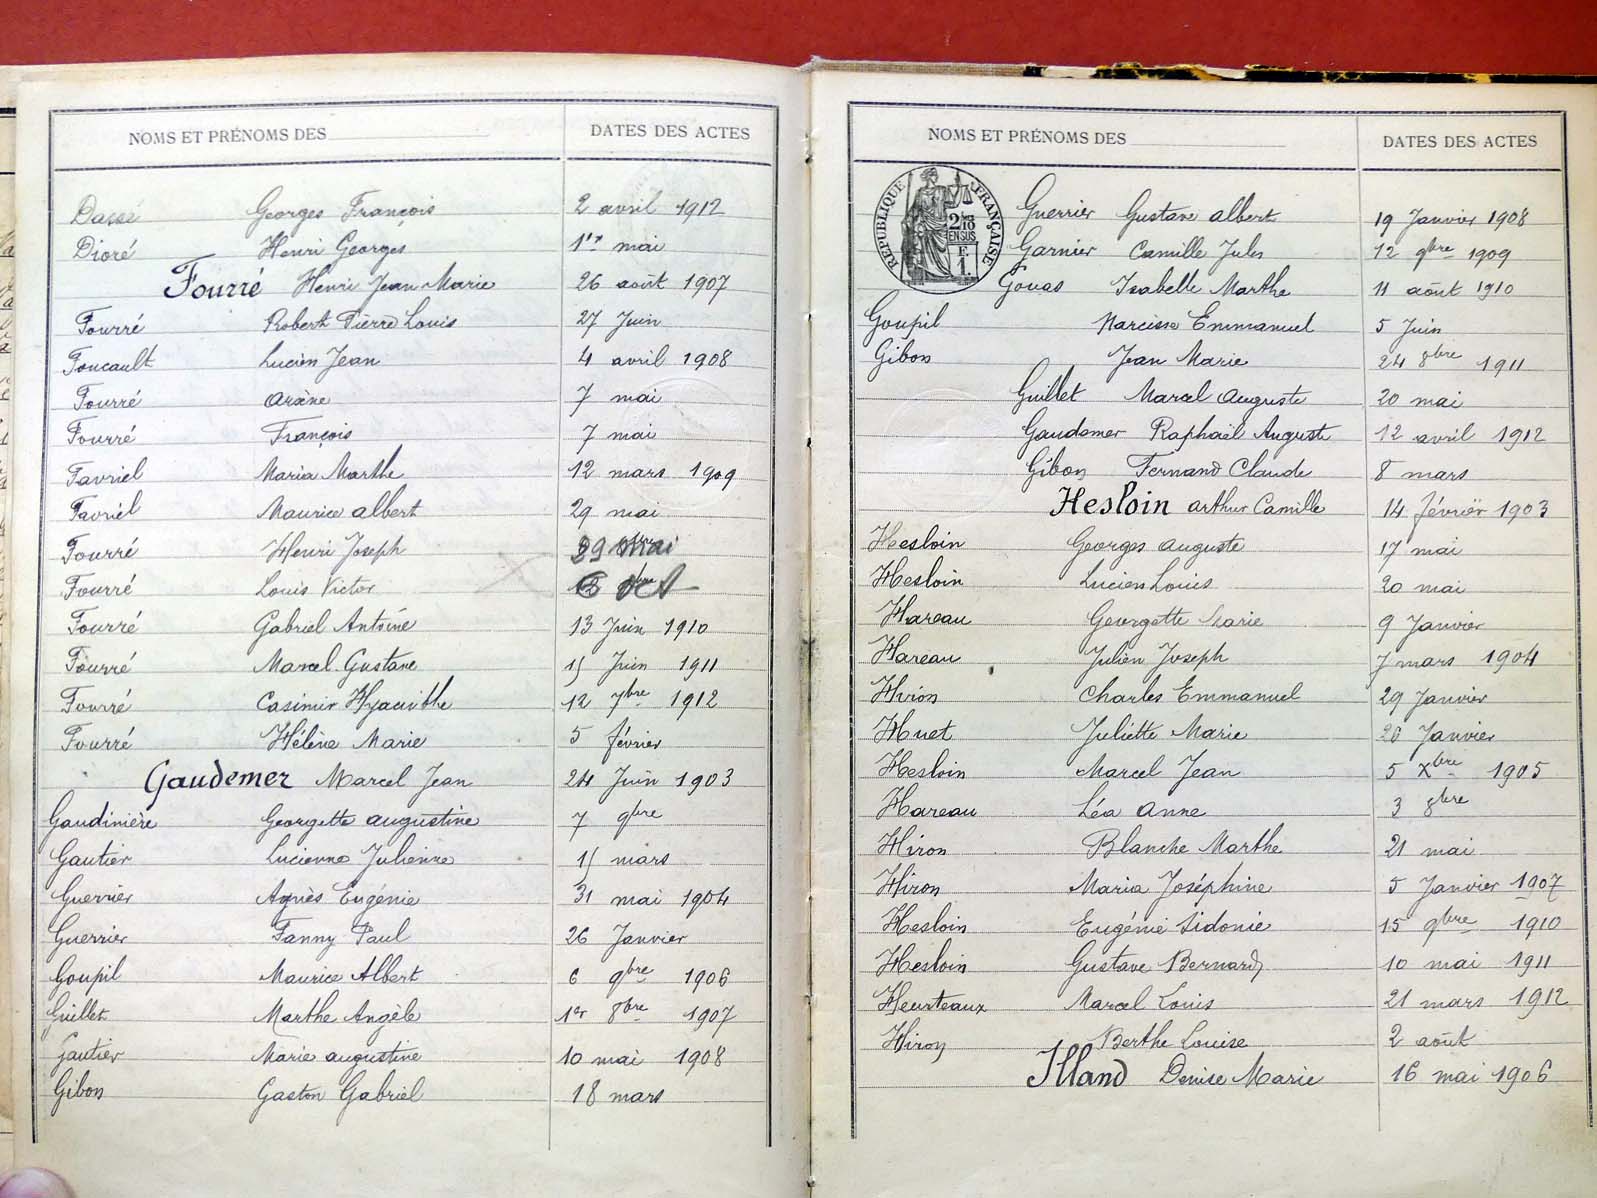 NOMS ET PRÉNOMS DES DATES DES ACTES
Dassé Georges François 2 avril 1912
Dioré Henri Georges 1er mai
Fourré Henri Jean Marie 26 août 1907
Fourré Robert Pierre Louis 27 Juin
Foucault Lucien Jean 4 avril 1908
Fourré Arsène 7 mai
Fourré François 7 mai
Favriel Maria Marthe 12 mars 1909
Favriel Maurice Albert 29 mai
Fourré Henri Joseph 29 mai
Fourré Louis Victor oct
Fourré Gabriel Antoine 13 Juin 1910
Fourré Marcel Gustave 15 Juin 1911
Fourré Casimir Hyacinthe 12 7bre 1912
Fourré Hélène Marie 5 février
Gaudemer Marcel Jean 24 Juin 1903
Gaudinière Georgette Augustine 7 9bre
Gautier Lucienne Julienne 15 mars
Guerrier Agnès Eugénie 31 mai 1904
Guerrier Fanny Paul 26 Janvier
Goupil Maurice Albert 6 9bre 1906
Guillet Marthe Angèle 1er 8bre 1907
Gautier Marie Augustine 10 mai 1908
Gibon Gaston Gabriel 18 mars
NOMS ET PRÉNOMS DES DATES DES ACTES
RÉPUBLIQUE FRANÇAISE
2/10
EN SUS
F.
1.
Guerrier Gustave Albert 19 Janvier 1908
Garnier Camille Jules 12 9bre 1909
Gouas Isabelle Marthe 11 août 1910
Goupil Narcisse Emmanuel 5 Juin
Gibon Jean Marie 24 8bre 1911
Guillet Marcel Auguste 20 mai
Gaudemer Raphaël Auguste 12 avril 1912
Gibon Fernand Claude 8 mars
Hesloin Arthur Camille 14 février 1903
Hesloin Georges Auguste 17 mai
Hesloin Lucien Louis 20 mai
Hareau Georgette Marie 9 Janvier
Hareau Julien Joseph 7 mars 1904
Hiron Charles Emmanuel 29 Janvier
Huet Juliette Marie 26 Janvier
Hesloin Marcel Jean 5 Xbre 1905
Hareau Léa Anne 3 8bre
Hiron Blanche Marthe 21 mai
Hiron Maria Joséphine 5 Janvier 1907
Hesloin Eugénie Sidonie 15 9bre 1910
Hesloin Gustave Bernard 10 mai 1911
Heurteaux Marcel Louis 21 mars 1912
Hiron Berthe Louise 2 août
Illand Denise Marie 16 mai 1906